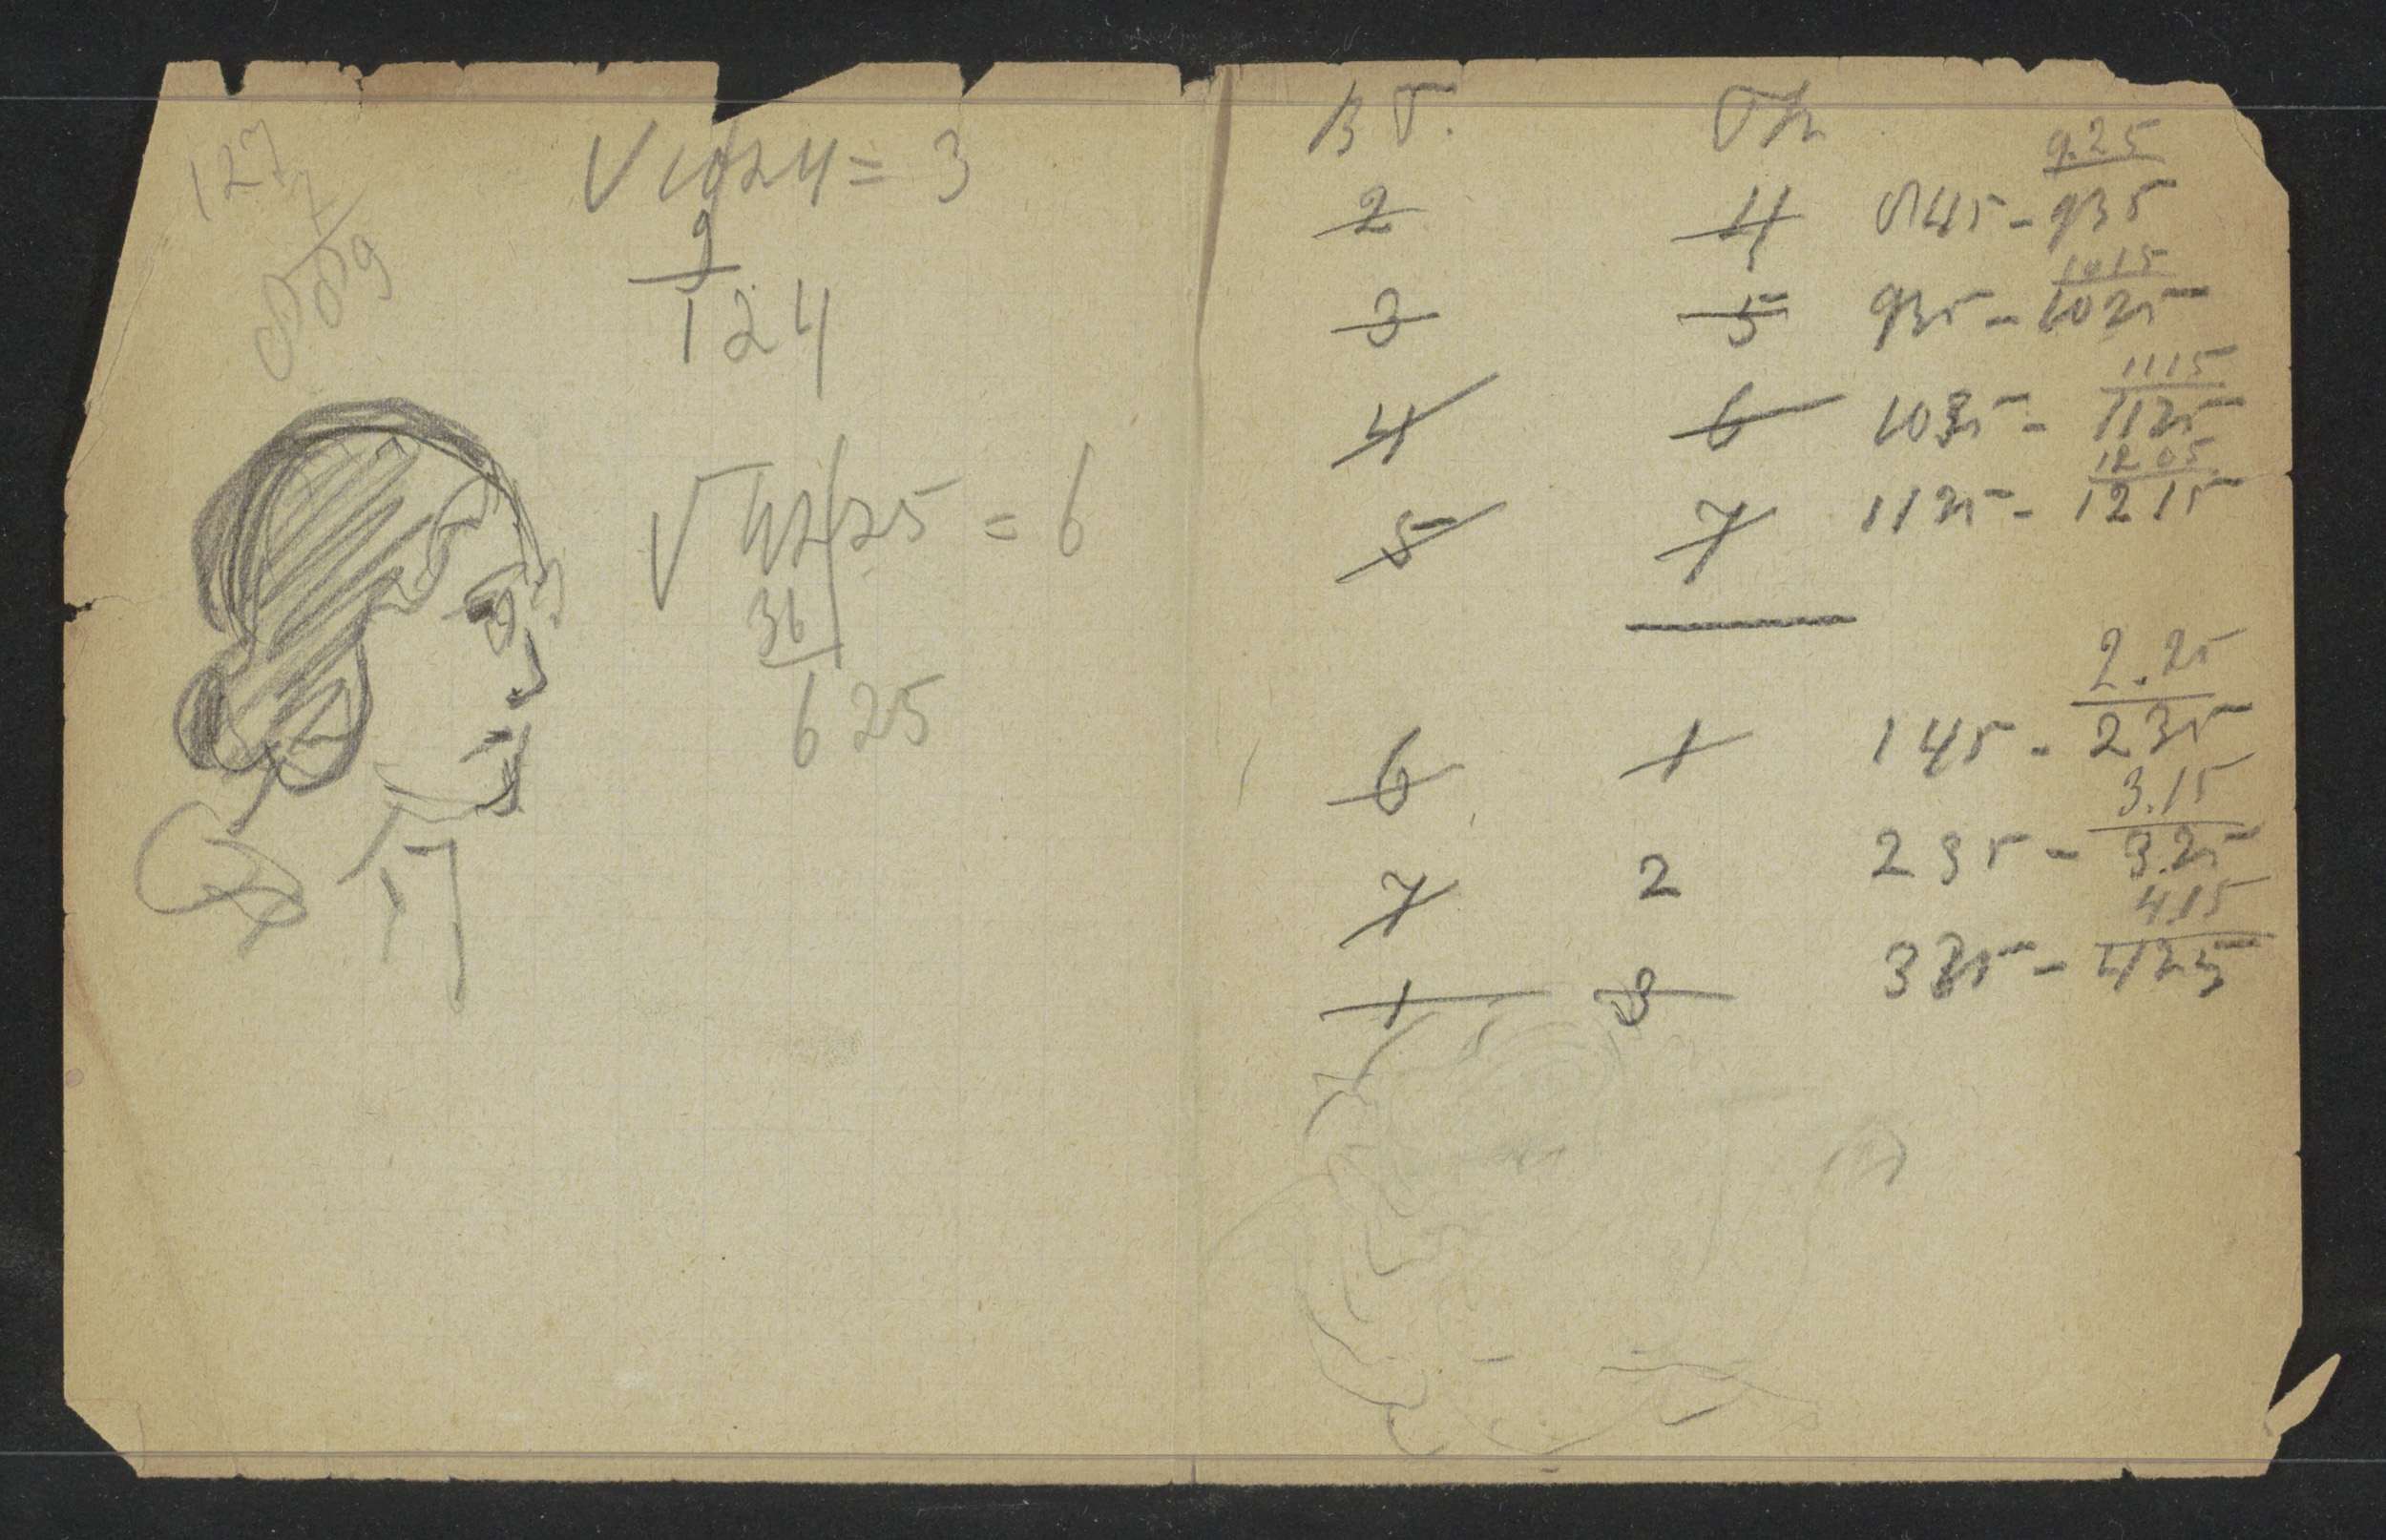 127
√1024 = 3
9
124
√4225 = 6
36
625
В Т.
2 4 845 - 9.25 935
3 5 935 - 1015 1025
4 6 1035 - 1115 1125
5 7 1125 - 1205 1215
6 1 145 - 2.25 235
7 2 235 - 3.15 3.25
1 3 325 - 415 425